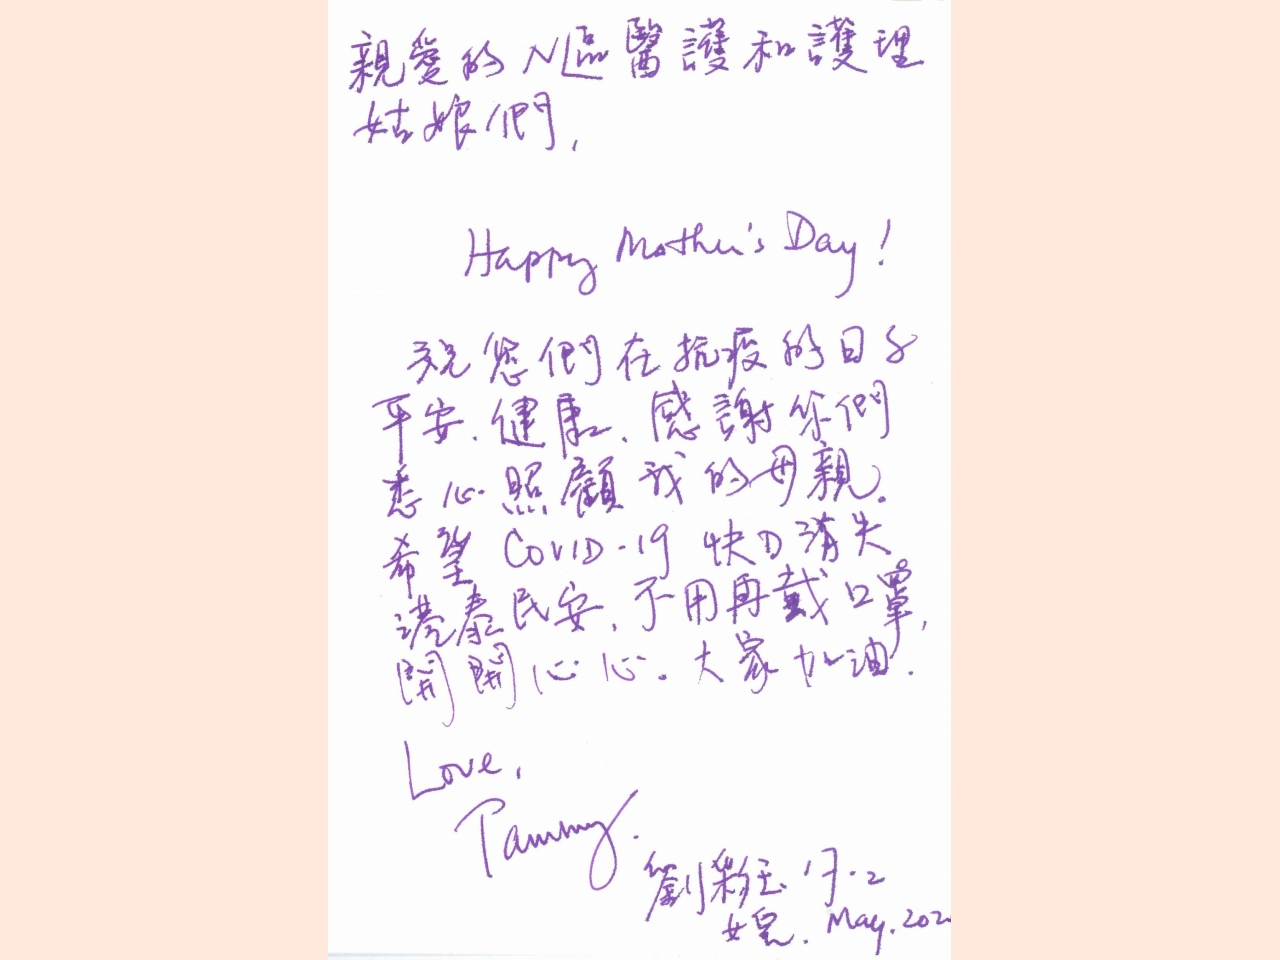 親愛的 N區醫護和護理
姑娘們,
Happy Mother's Day!
祝您們在抗疫的日子
平安、健康、感謝你們
悉心照顧我的母親。
希望 COVID-19 快D消失
港泰民安、不用再戴口罩,
開開心心。大家加油.
Love,
Tammy.
劉彩玉 17-2
女兒. May, 202